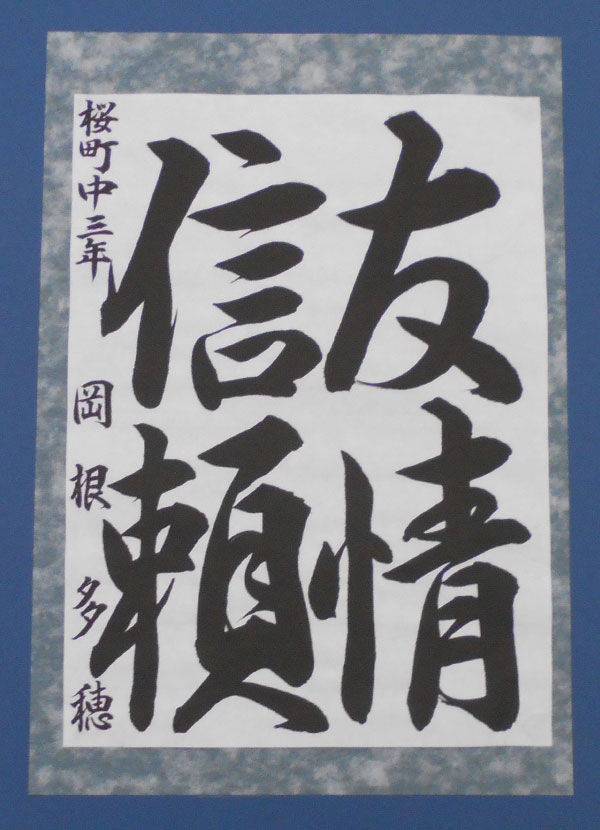 友情
信頼
桜町中三年 岡根多穂